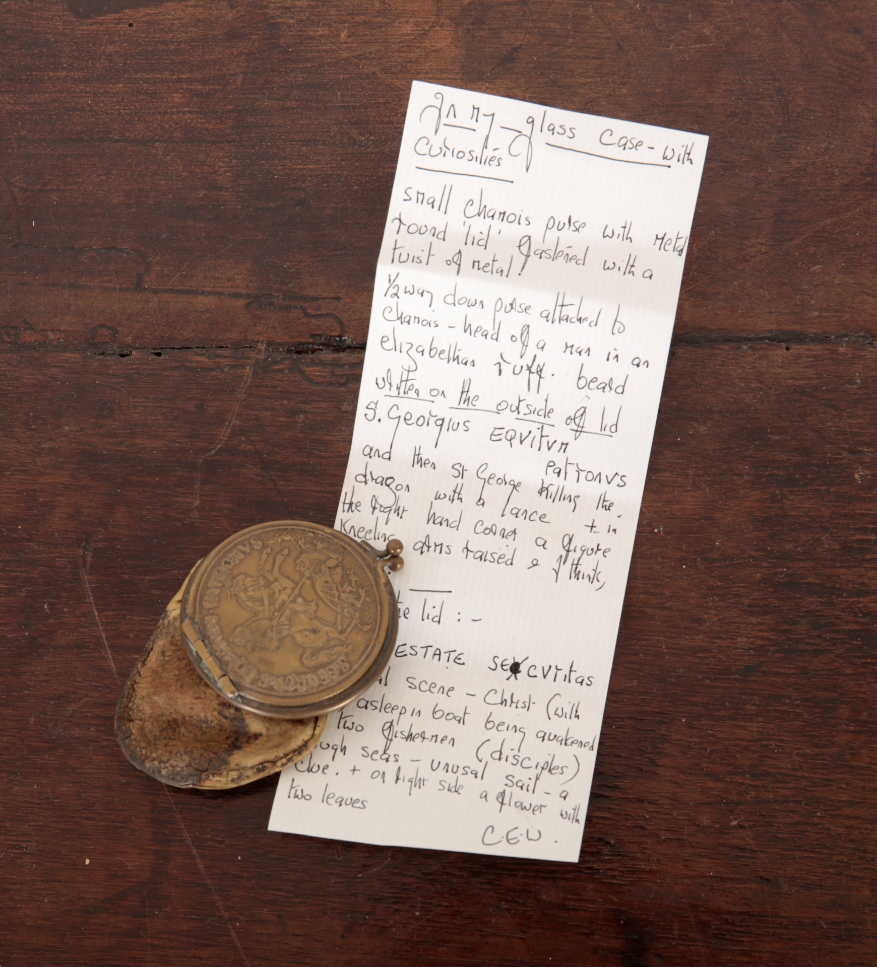 In my glass case - with
Curiosities
small chamois purse with metal
round 'lid' fastened with a
twist of metal!
1/2 way down purse attached to
chamois - head of a man in an
elizabethan ruff. beard
written on the outside of lid
S. Georgius EQVITVM
PATRONVS
and then St George killing the
dragon with a lance + in
the right hand corner a figure
kneeling arms raised & I think,
the lid : -
ESTATE SECVRITAS
scene - Christ (with
asleep in boat being awakened
two fishermen (disciples)
seas - unusal sail - a
clue. + on right side a flower with
two leaves
C.E.W.